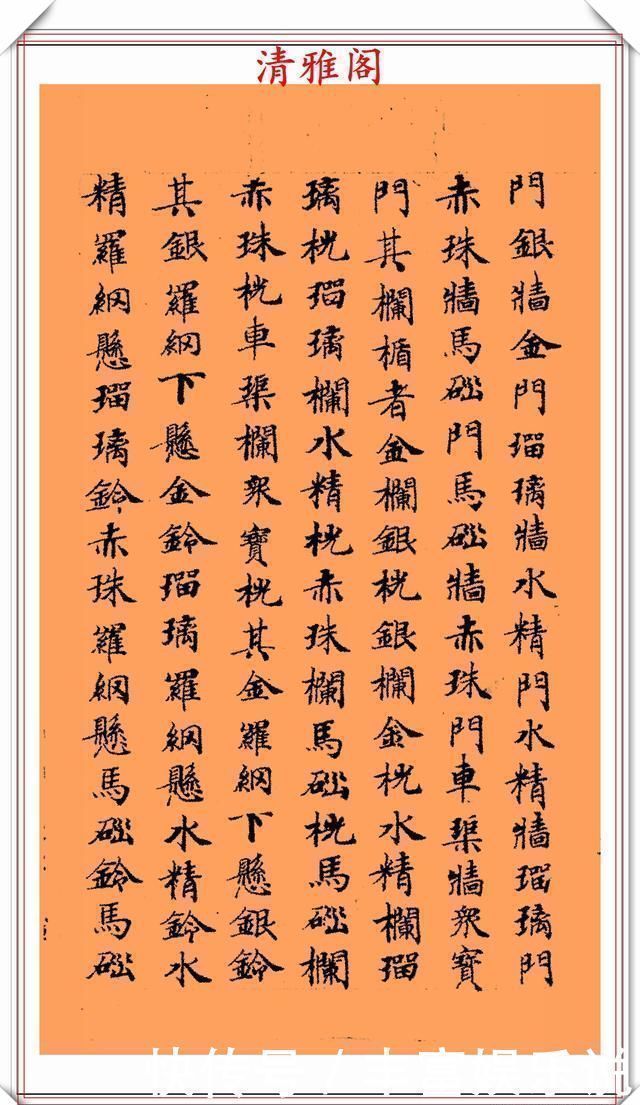 清雅阁
門銀牆金門瑠璃牆水精門水精牆瑠璃門
赤珠牆馬碯門馬碯牆赤珠門車渠牆衆寶
門其欄楯者金欄銀桄銀欄金桄水精欄瑠
璃桄瑠璃欄水精桄赤珠欄馬碯桄馬碯欄
赤珠桄車渠欄衆寶桄其金羅網下懸銀鈴
其銀羅網下懸金鈴瑠璃羅網懸水精鈴水
精羅網懸瑠璃鈴赤珠羅網懸馬碯鈴馬碯
快传号/丰富娱乐说